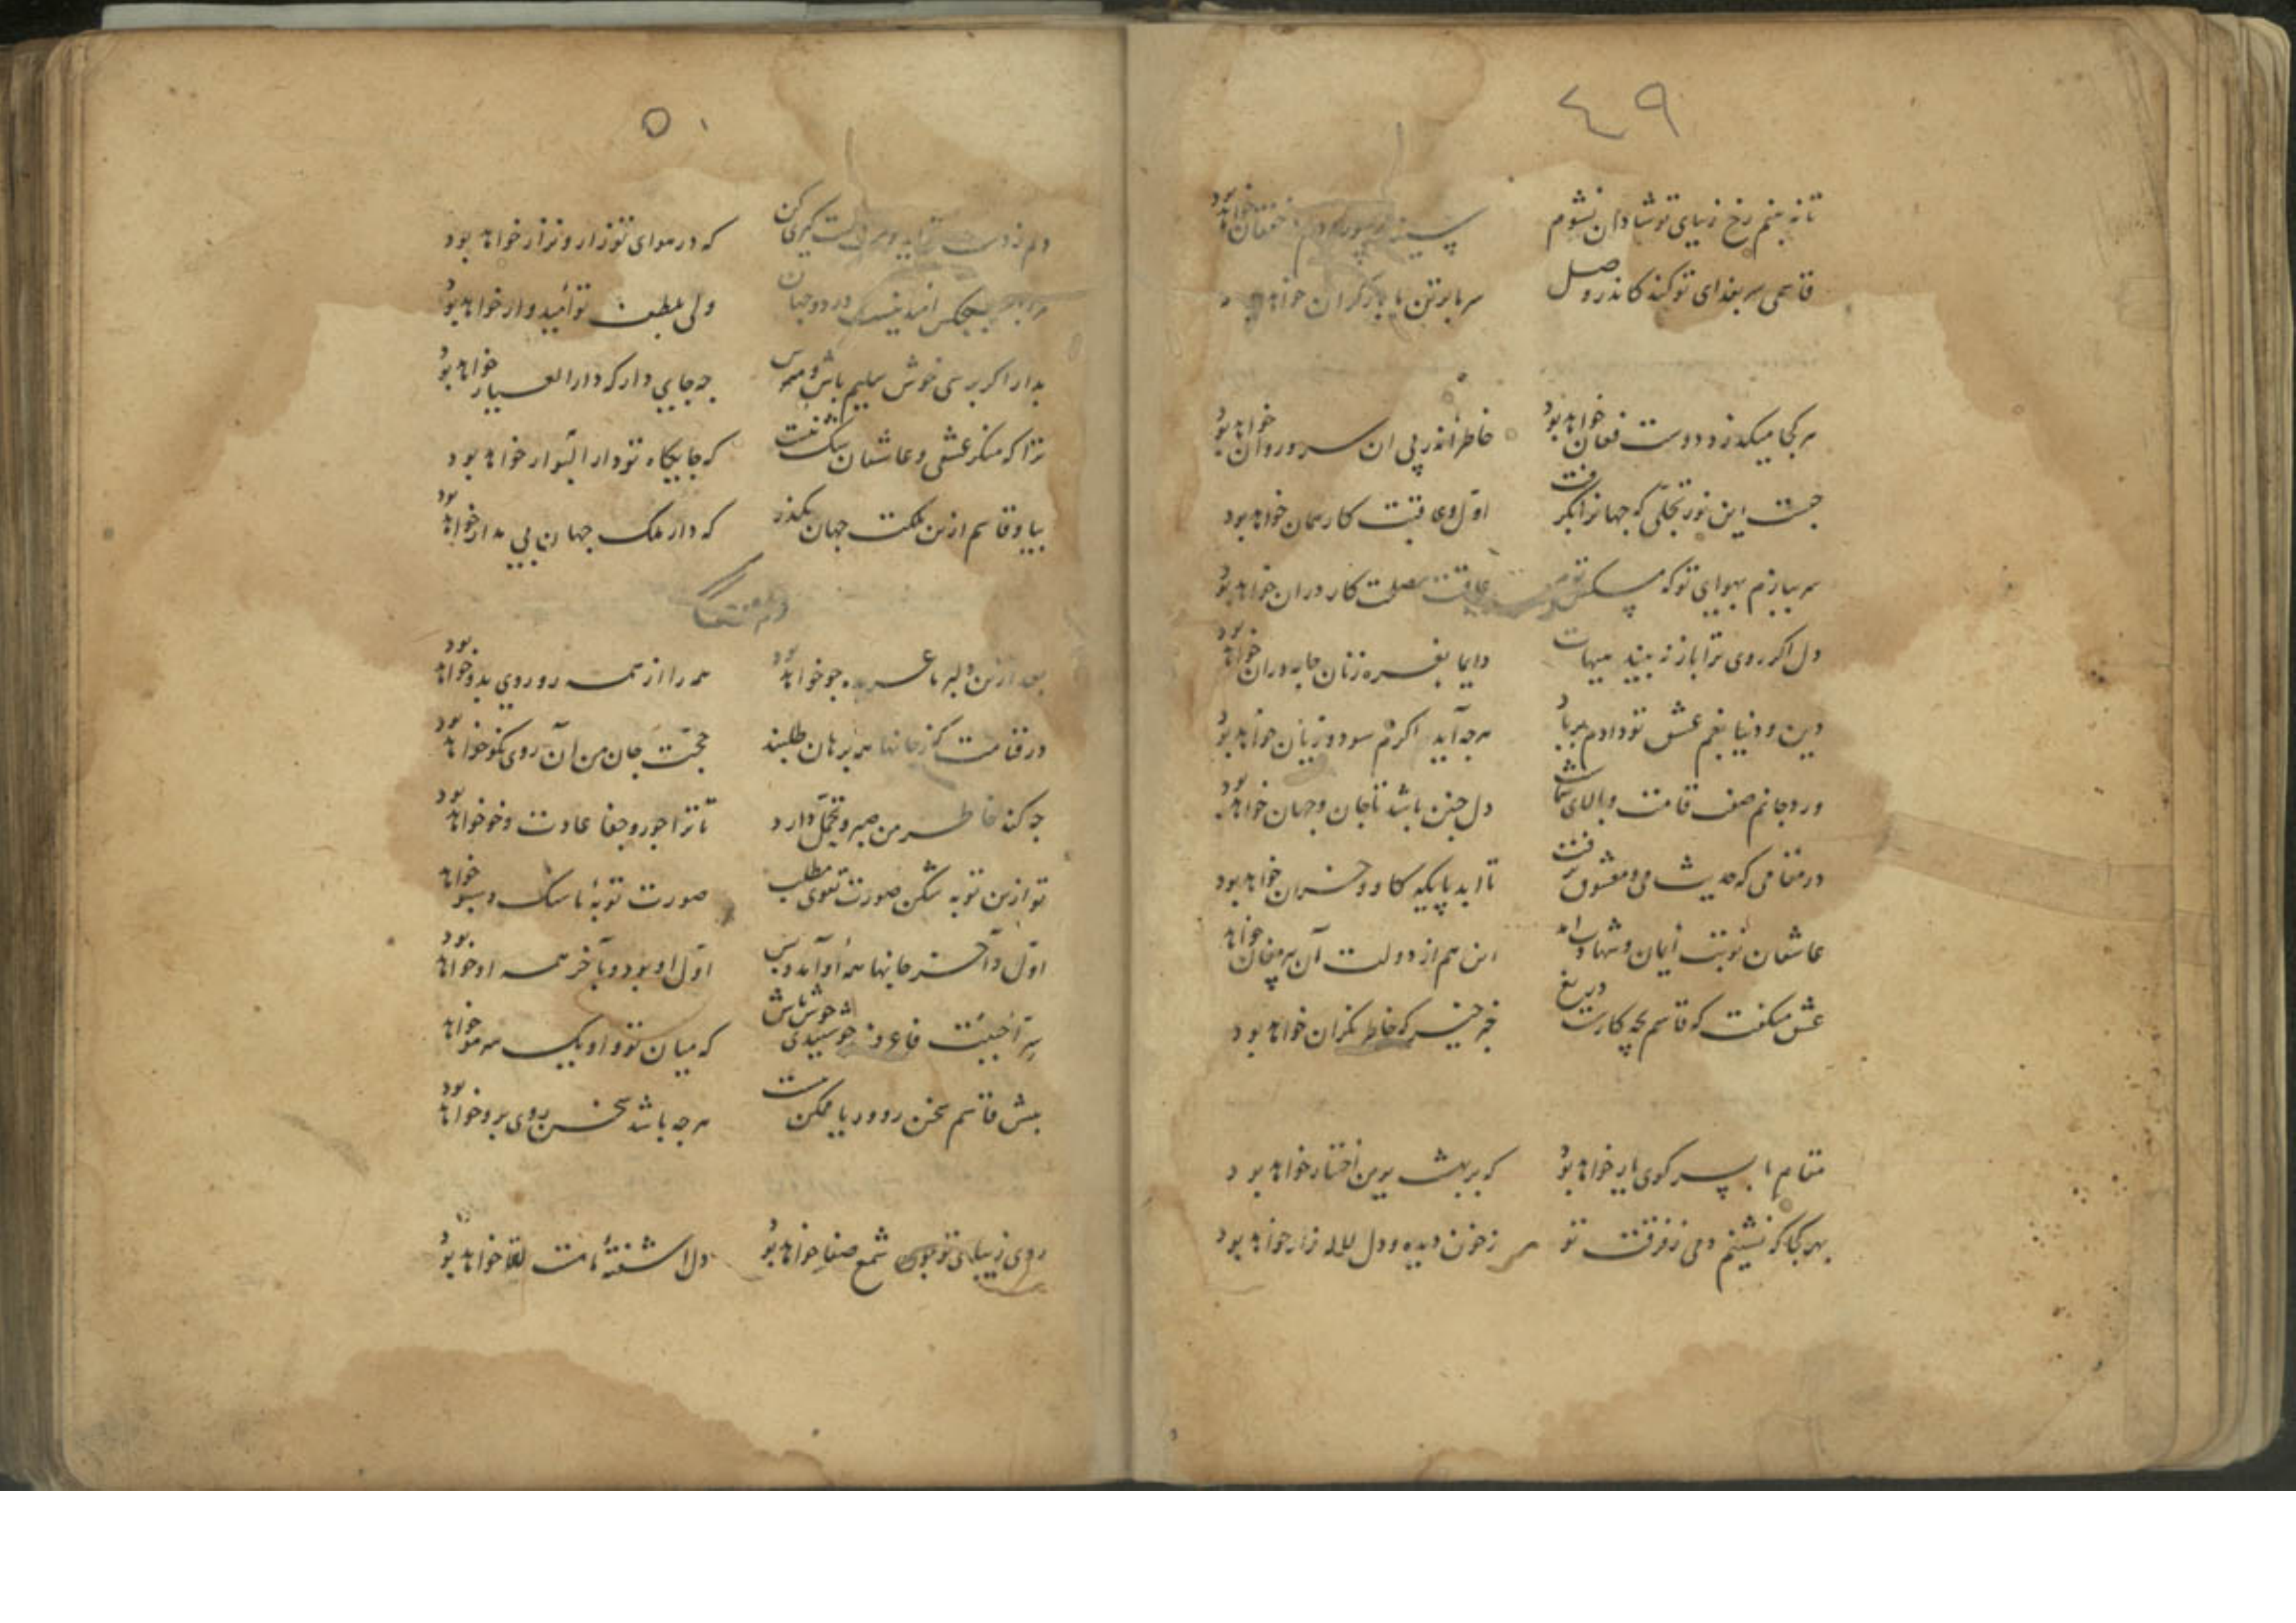 ٤٩
تا نه بینم رخ زیبای تو شادان نشوم سینه دلم خفقان خواهد بود
قاسمی سر بفدای تو کند کاندر وصل سر ما بر تن ما بار گران خواهد بود
هر کجا میکذرد دوست فغان خواهد بود خاطر اندر پی ان سرو روان خواهد بود
چیست این نور تجلّی که جهانرا بگرفت اوّل وعاقبت کار همان خواهد بود
سر ببازم بهوای تو که عاقبت مصلحت کار دران خواهد بود
دل اکر روی ترا باز نه بیند هیهات دایما نعره زنان جامه دران خواهد بود
دین و دنیا بغم عشق تو دادم بر باد هرچه آید اکرم سود و زیان خواهد بود
ورد جانم صف قامت وبالای شماست دل چنین باشد تا جان وجهان خواهد بود
در مقامی که حدیث می ومعشوق نرفت تا ابد پایکه کاو وخران خواهد بود
عاشقان نوبت ایمان وشهادت این هم از دولت آن پیر مغان خواهد
عشق میکفت که قاسم بچه کارست دریغ خبر که خاطر نکران خواهد بود
مقام ما بسر کوی یار خواهد بود که بر بهشت برین اختیار خواهد بود
بهر کجا که نشینم دمی زفرقت تو زخون دیده ودل لاله زار خواهد بود
٥٠
دلم زدست کیری کن که در هوای تو زار ونزار خواهد بود
بهیچکس امید نیست در دو جهان ولی بلطف تو امیدوار خواهد بود
بدار اکر برسی خوش سلیم باش ومترس چه جای دار که دار العیار خواهد بود
ترا که منکر عشقی وعاشقان شکّت نیست که جایکاه تو دار البوار خواهد بود
بیا وقاسم ازین ملکت جهان بکذر که دار ملک جهان بی مدار خواهد بود
بعد ازین دلبر ما عربده جو خواهد بود همه را از همه رو روی بدو خواهد بود
در قیامت که زجانها همه برهان طلبند حجّت جان من آن روی نکو خواهد بود
چه کند خاطر من صبر وتحمّل دارد تا ترا جور وجفا عادت وخو خواهد بود
تو ازین توبه شکن صورت تقوی مطلب صورت توبهٔ ما سنک وسبو خواهد
اوّل وآخر جانها همه او آمد وبس اوّل او بود وبآخر همه او خواهد بود
سرّ احببت خوش باش که میان تو واو یک سر مو خواهد
پیش قاسم سخن رو وریا ممکن نیست هرچه باشد سخن روی برو خواهد بود
روی زیبای تو چون شمع صفا خواهد بود دل اشفتهٔ ما مست لقا خواهد بود